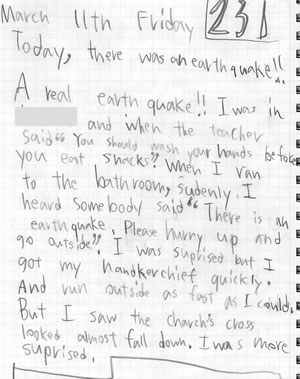 March 11th Friday 231
Today, there was an earthquake!!
A real earthquake!! I was in
and when the teacher
said “You should wash your hands before
you eat snacks”. When I ran
to the bathroom, sudenly, I
heard somebody said “There is an
earthquake. Please hurry up and
go outside”. I was suprised but I
got my handkerchief quickly.
And run outside as fast as I could.
But I saw the charch's cross
looked almost fall down. I was more
suprised.